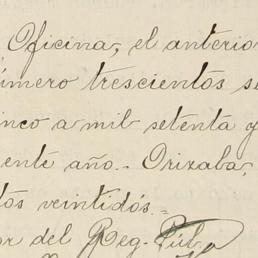 Oficina, el anterio
número trescientos se
inco a mil setenta y
ente año.- Orizaba,
tos veintidós.=
or del Reg. Púb